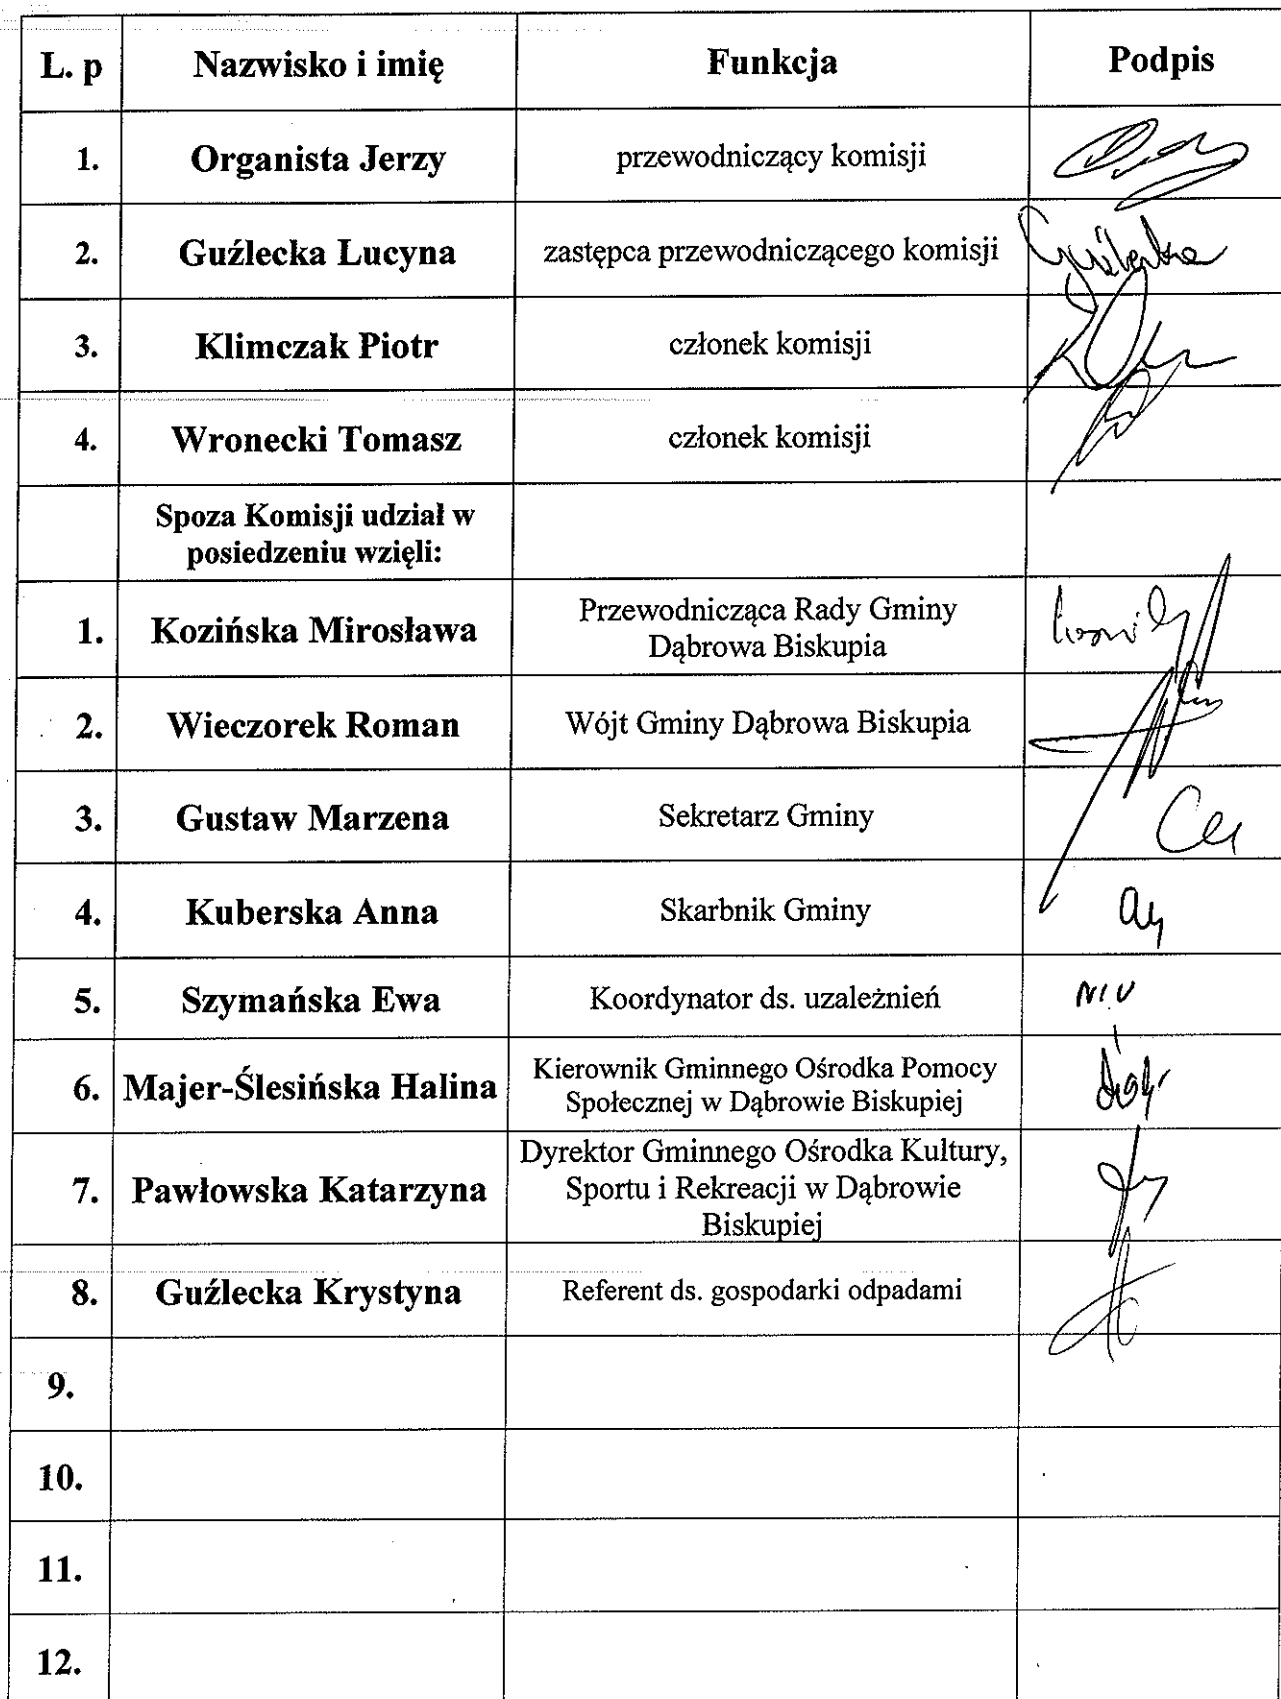 L. p Nazwisko i imię Funkcja Podpis
1. Organista Jerzy przewodniczący komisji
2. Guźlecka Lucyna zastępca przewodniczącego komisji
3. Klimczak Piotr członek komisji
4. Wronecki Tomasz członek komisji
Spoza Komisji udział w
posiedzeniu wzięli:
1. Kozińska Mirosława Przewodnicząca Rady Gminy
Dąbrowa Biskupia
2. Wieczorek Roman Wójt Gminy Dąbrowa Biskupia
3. Gustaw Marzena Sekretarz Gminy
4. Kuberska Anna Skarbnik Gminy
5. Szymańska Ewa Koordynator ds. uzależnień
6. Majer-Ślesińska Halina Kierownik Gminnego Ośrodka Pomocy
Społecznej w Dąbrowie Biskupiej
7. Pawłowska Katarzyna Dyrektor Gminnego Ośrodka Kultury,
Sportu i Rekreacji w Dąbrowie
Biskupiej
8. Guźlecka Krystyna Referent ds. gospodarki odpadami
9.
10.
11.
12.